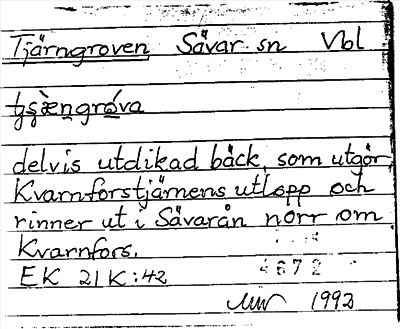 Tjärngroven Sävar sn Vbl
delvis utdikad bäck, som utgör
Kvarnforstjärnens utlopp och
rinner ut i Sävarån norr om
Kvarnfors.
EK 21K:42 4672
1992